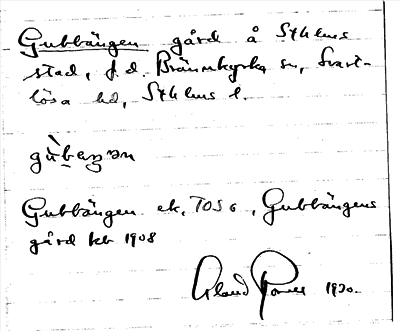 Gubbängen gård å Sthlms
stad, f.d. Brännkyrka sn, Svart-
lösa hd, Sthlms l.
gùbeŋən
Gubbängen ek, TOS 6, Gubbängens
gård kb 1908
1920.